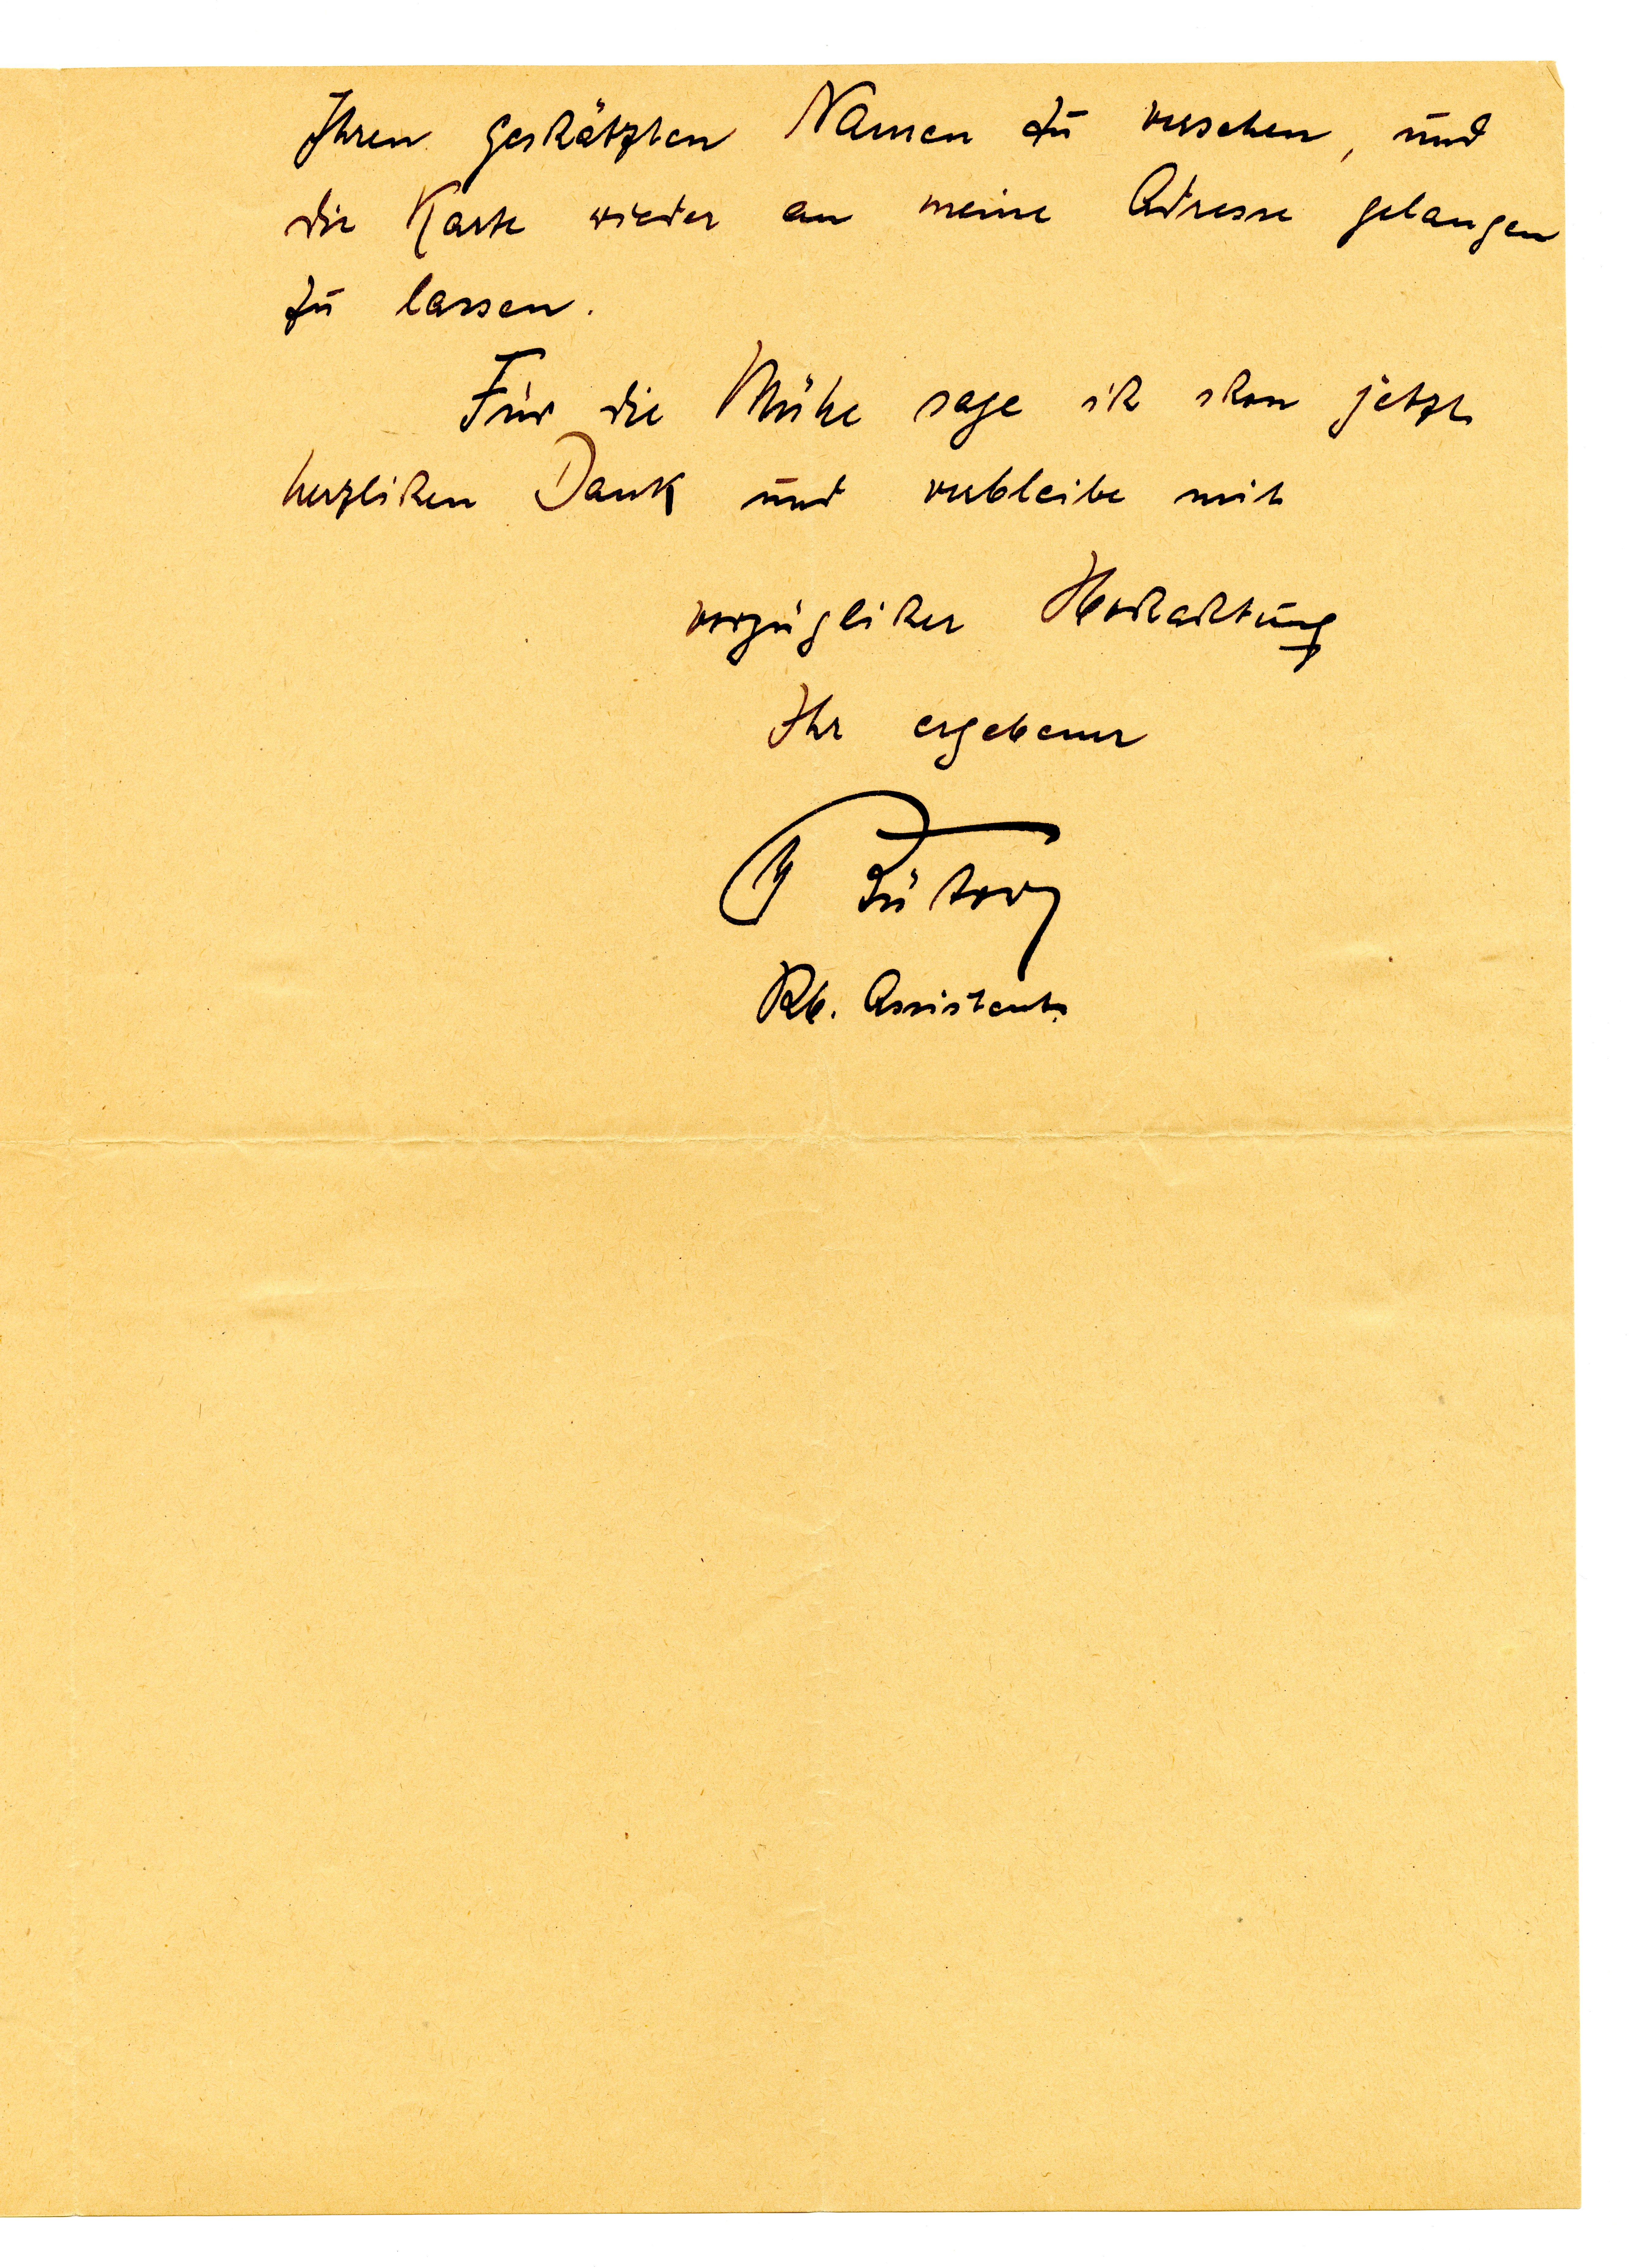 Ihren geschätzten Namen zu versehen, und
die Karte wieder an meine Adresse gelangen
zu lassen.
Für die Mühe sage ich schon jetzt
herzlichen Dank und verbleibe mit
vorzüglicher Hochachtung
Ihr ergebener
Rb. Assistent.